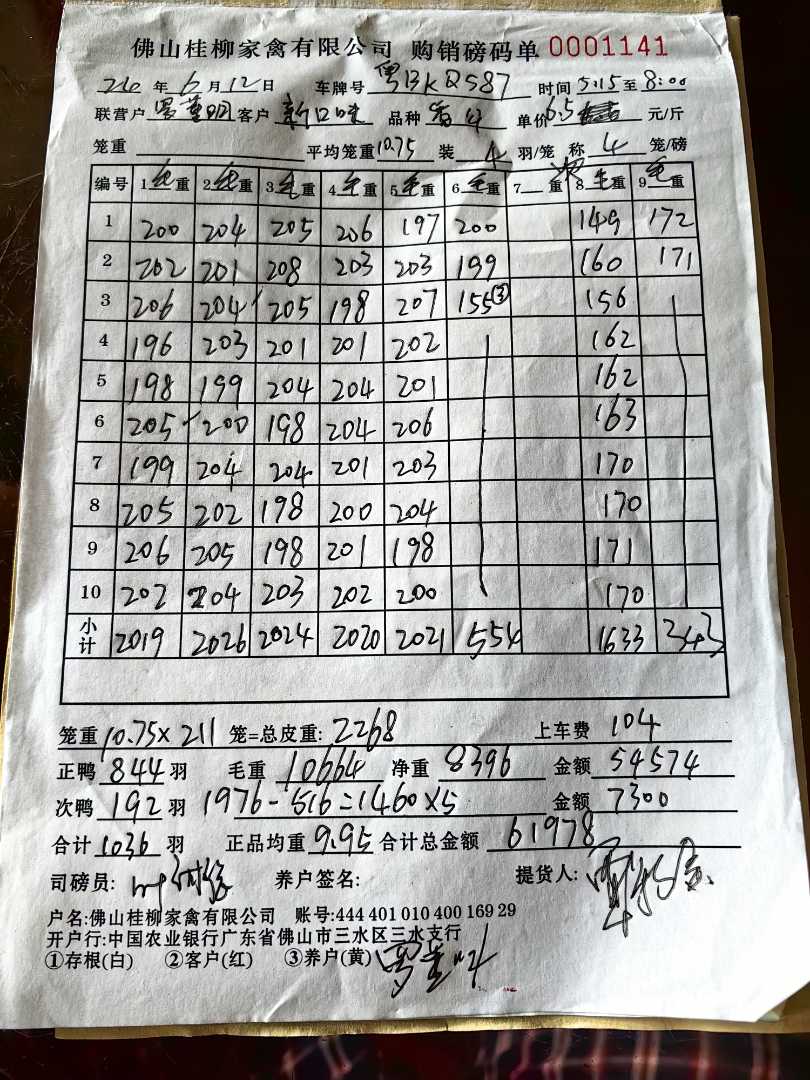 佛山桂柳家禽有限公司 购销磅码单 0001141
年 6 月 12 日 车牌号 粤BKQ587 时间 5:15 至 8:00
联营户 客户 新口味 品种 单价 6.5 元/斤
笼重 平均笼重 10.75 装 4 羽/笼 称 4 笼/磅
编号 1 毛重 2 毛重 3 毛重 4 毛重 5 毛重 6 毛重 7 重 次 8 毛重 9 毛重
1 200 204 205 206 197 200 149 172
2 202 201 208 203 203 199 160 171
3 206 204 205 198 207 155(3) 156
4 196 203 201 201 202 162
5 198 199 204 204 201 162
6 205 200 198 204 206 163
7 199 204 204 201 203 170
8 205 202 198 200 204 170
9 206 205 198 201 198 171
10 202 204 203 202 200 170
小计 2019 2026 2024 2020 2021 554 1633 343
笼重 10.75×211 笼=总皮重: 2268 上车费 104
正鸭 844 羽 毛重 10664 净重 8396 金额 54574
次鸭 192 羽 1976-516=1460×5 金额 7300
合计 1036 羽 正品均重 9.95 合计总金额 61978
司磅员: 养户签名: 提货人:
户名:佛山桂柳家禽有限公司 账号:444 401 010 400 169 29
开户行:中国农业银行广东省佛山市三水区三水支行
①存根(白) ②客户(红) ③养户(黄)